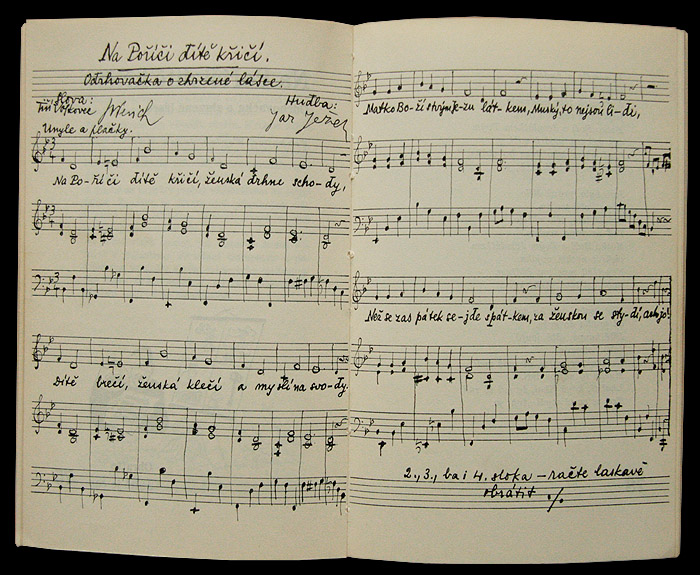 Na Poříči dítě křičí.
Odrhovačka o zhrzené lásce.
Slova:
Jiří Voskovec
Hudba:
Jar Ježek
Umyle a plačky.
Na Po-ří-čí dítě křičí, ženská drhne scho-dy,
Dítě brečí, ženská klečí a myslí na svo-dy.
Matko Bo-ží strýnje-zu lát-kem, Mužský, to nejsou li-di,
Než se zas pátek se-jde spát-kem, za ženskou se sty-dí, ach jo!
2., 3., ba i 4. sloka – račte laskavě
obrátit ·/.